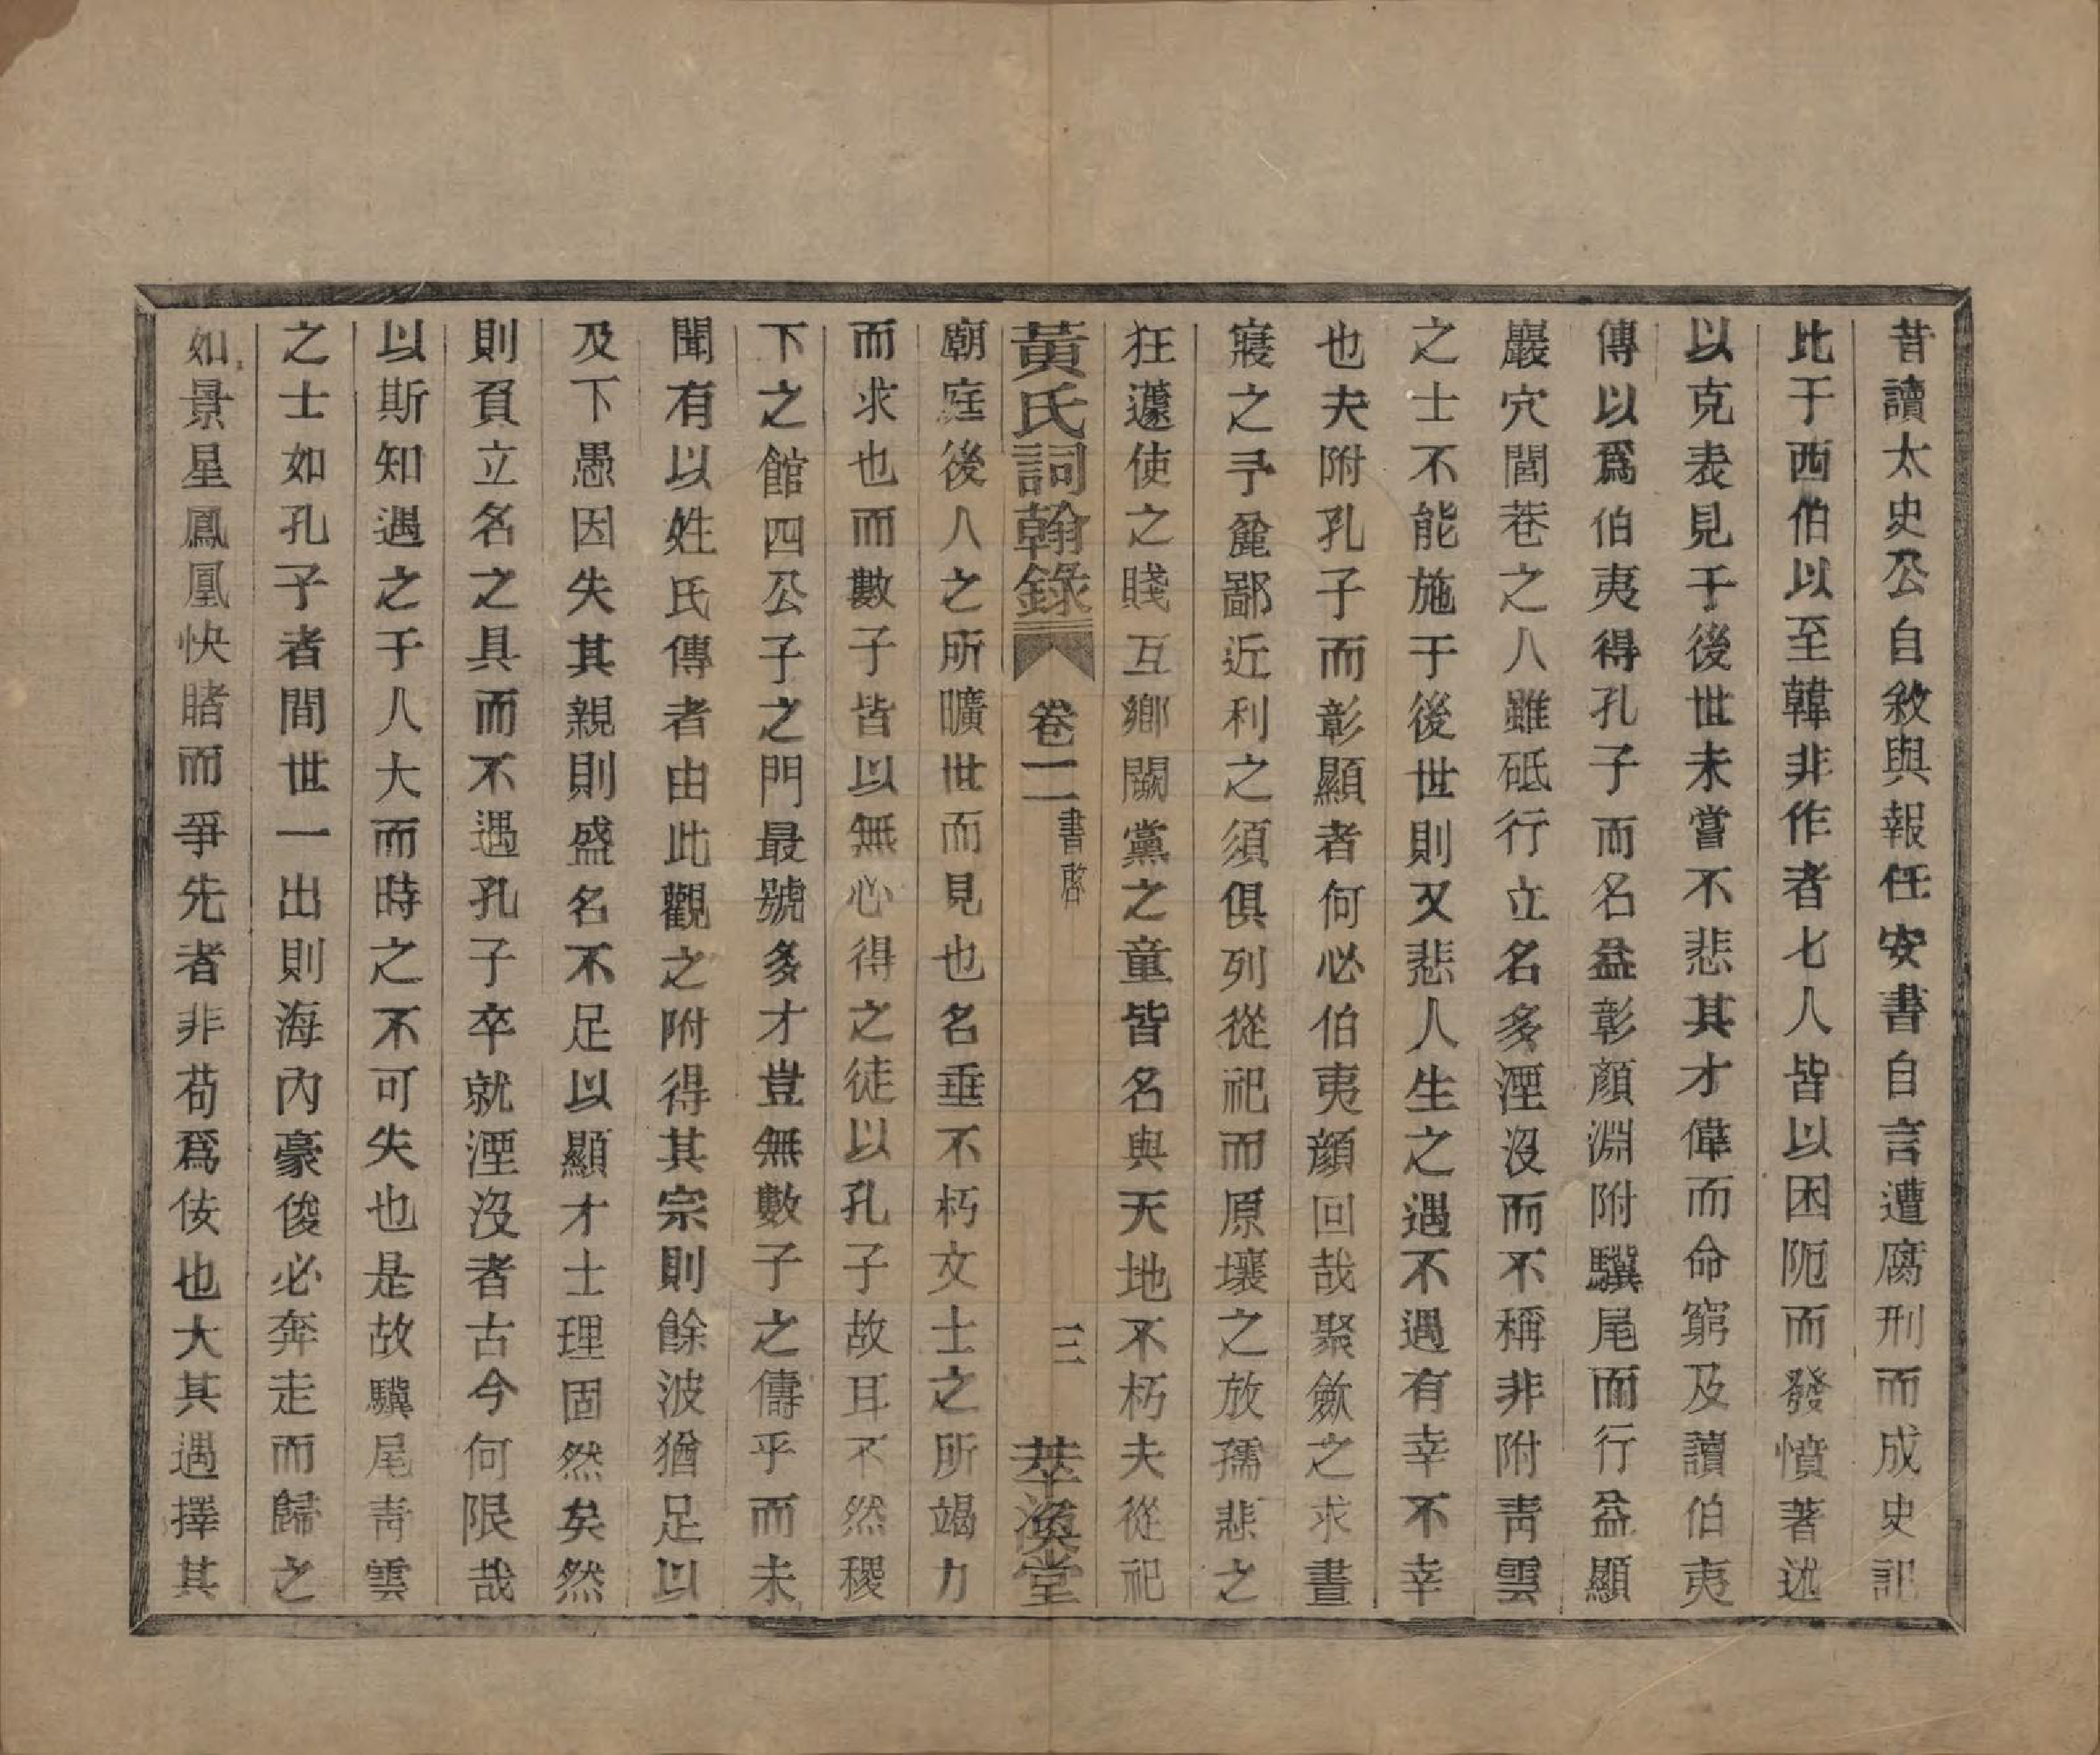 昔讀太史公自敘與報任安書自言遭腐刑而成史記
比于西伯以至韓非作者七人皆以困阨而發憤著述
以克表見于後世未嘗不悲其才偉而命窮及讀伯夷
傳以爲伯夷得孔子而名益彰顏淵附驥尾而行益顯
巖穴閭巷之人雖砥行立名多湮沒而不稱非附靑雲
之士不能施于後世則又悲人生之遇不遇有幸不幸
也夫附孔子而彰顯者何必伯夷顏回哉聚歛之求晝
寢之予麄鄙近利之須俱列從祀而原壤之放孺悲之
狂蘧使之賤互鄉闕黨之童皆名與天地不朽夫從祀
黃氏詞翰錄 卷二 書啓 三 萃渙堂
廟庭後人之所曠世而見也名垂不朽文士之所竭力
而求也而數子皆以無心得之徒以孔子故耳不然稷
下之館四公子之門最號多才豈無數子之儔乎而未
聞有以姓氏傳者由此觀之附得其宗則餘波猶足以
及下愚因失其親則盛名不足以顯才士理固然矣然
則負立名之具而不遇孔子卒就湮沒者古今何限哉
以斯知遇之于人大而時之不可失也是故驥尾靑雲
之士如孔子者間世一出則海內豪俊必奔走而歸之
如景星鳳凰快睹而爭先者非苟爲侫也大其遇擇其